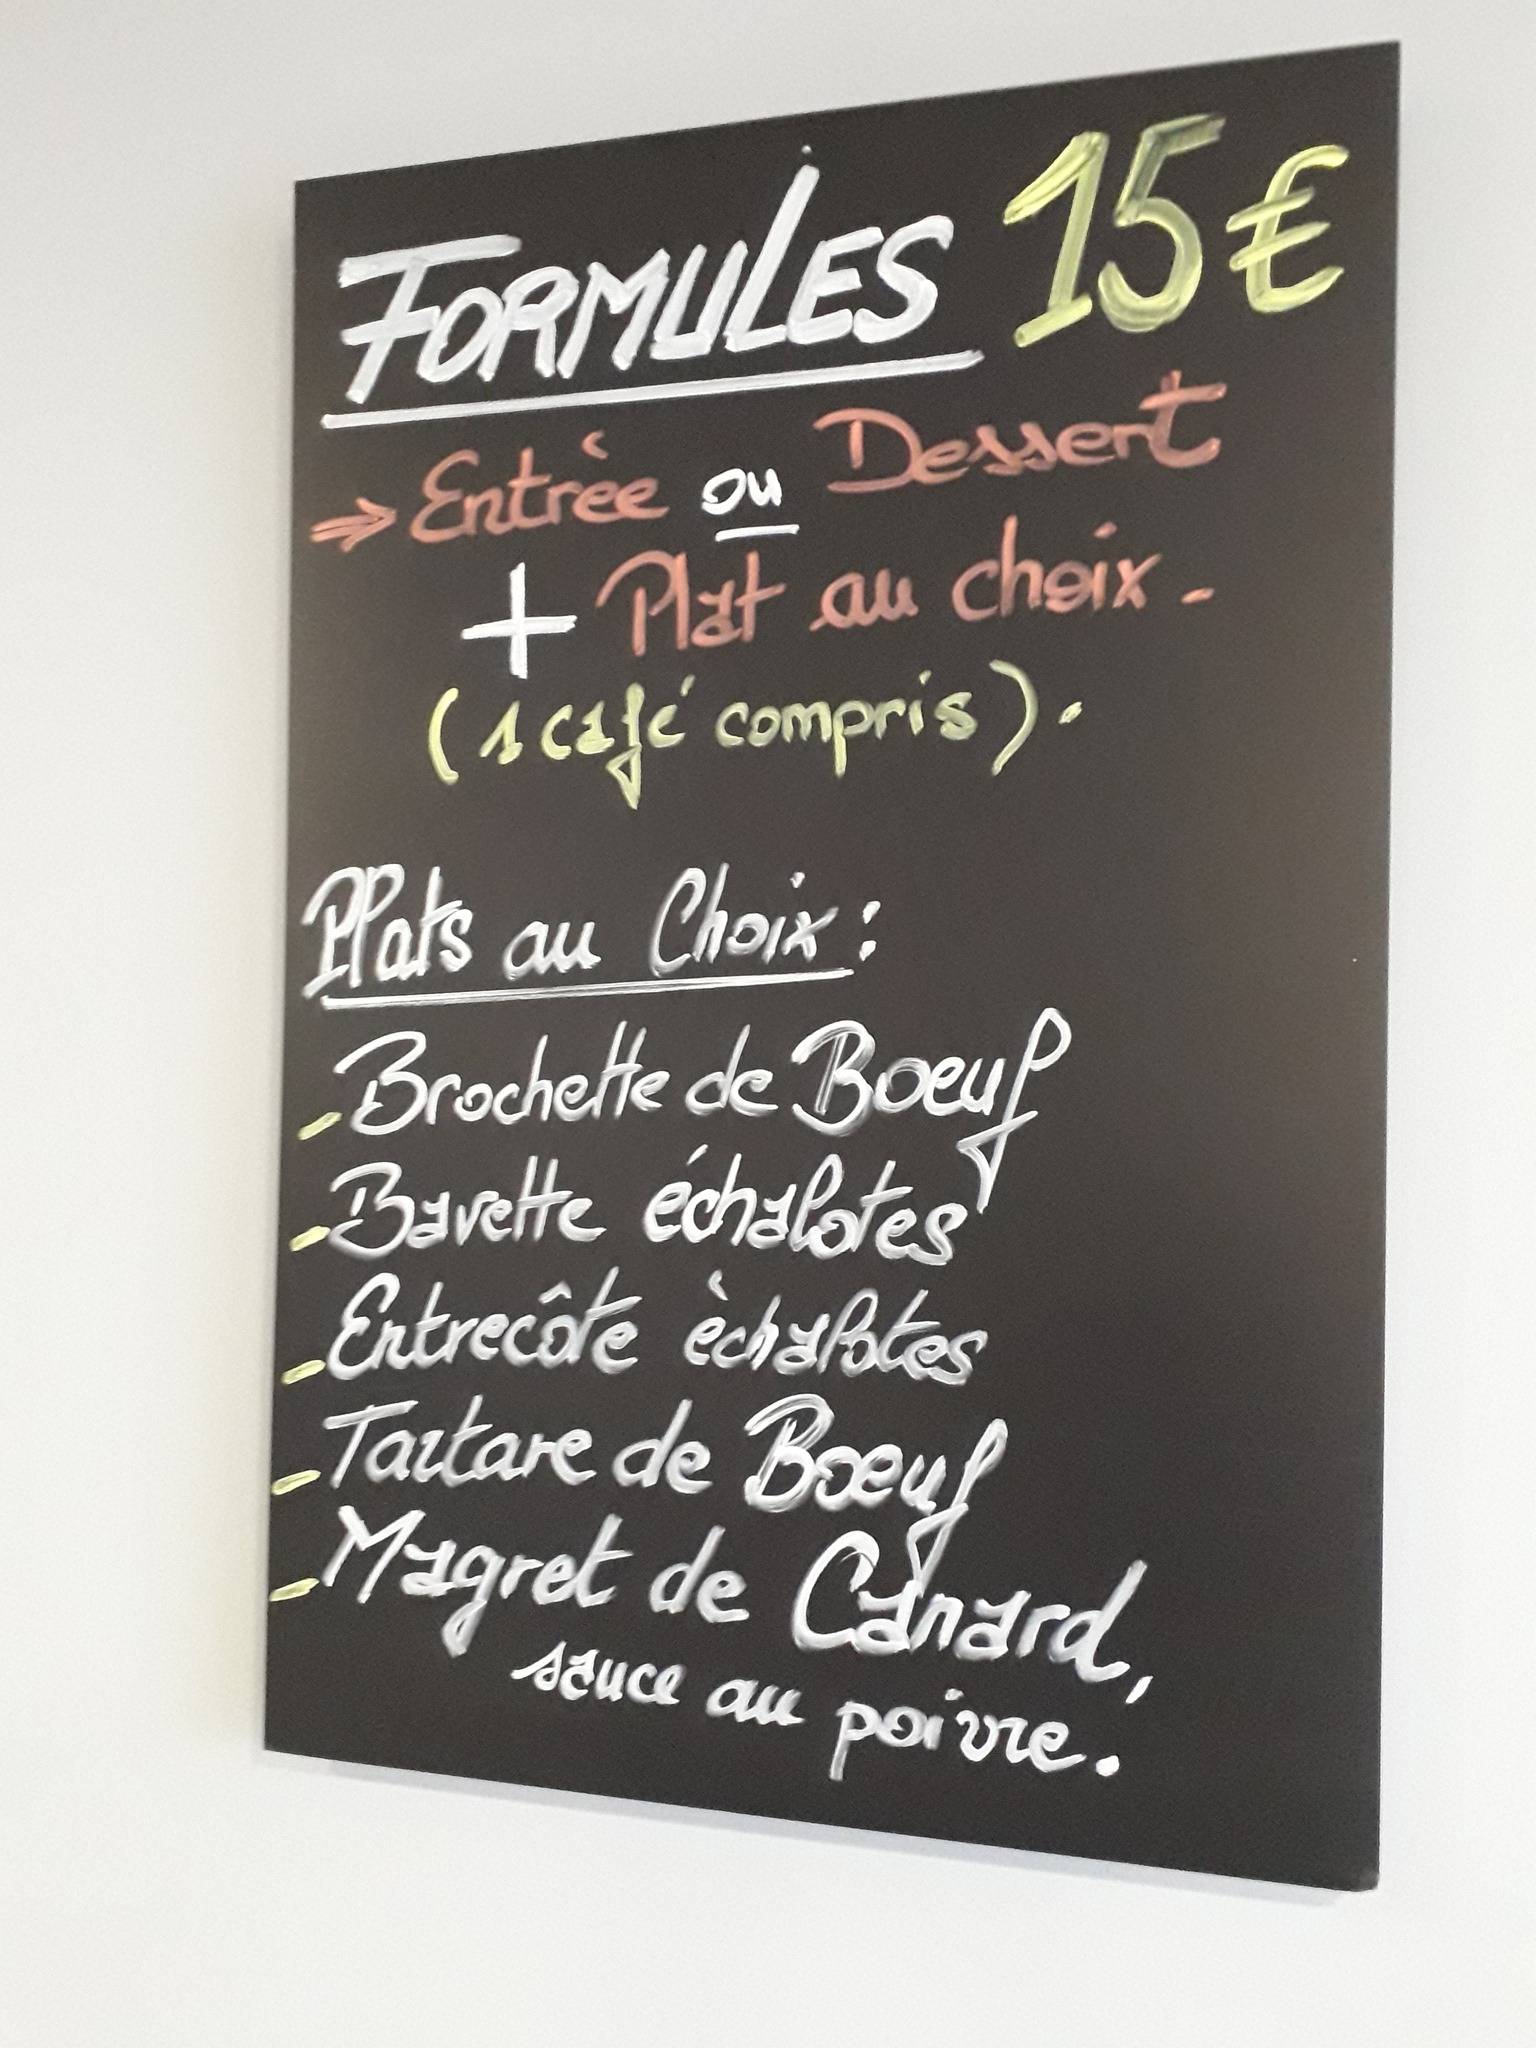 FORMULES 15€
⇒ Entrèe ou Dessert
+ Plat au choix.
(1 café compris).
Plats au Choix :
- Brochette de Boeuf
- Bavette échalotes
- Entrecôte èchalotes
- Tartare de Bœuf
- Magret de Canard,
sauce au poivre.